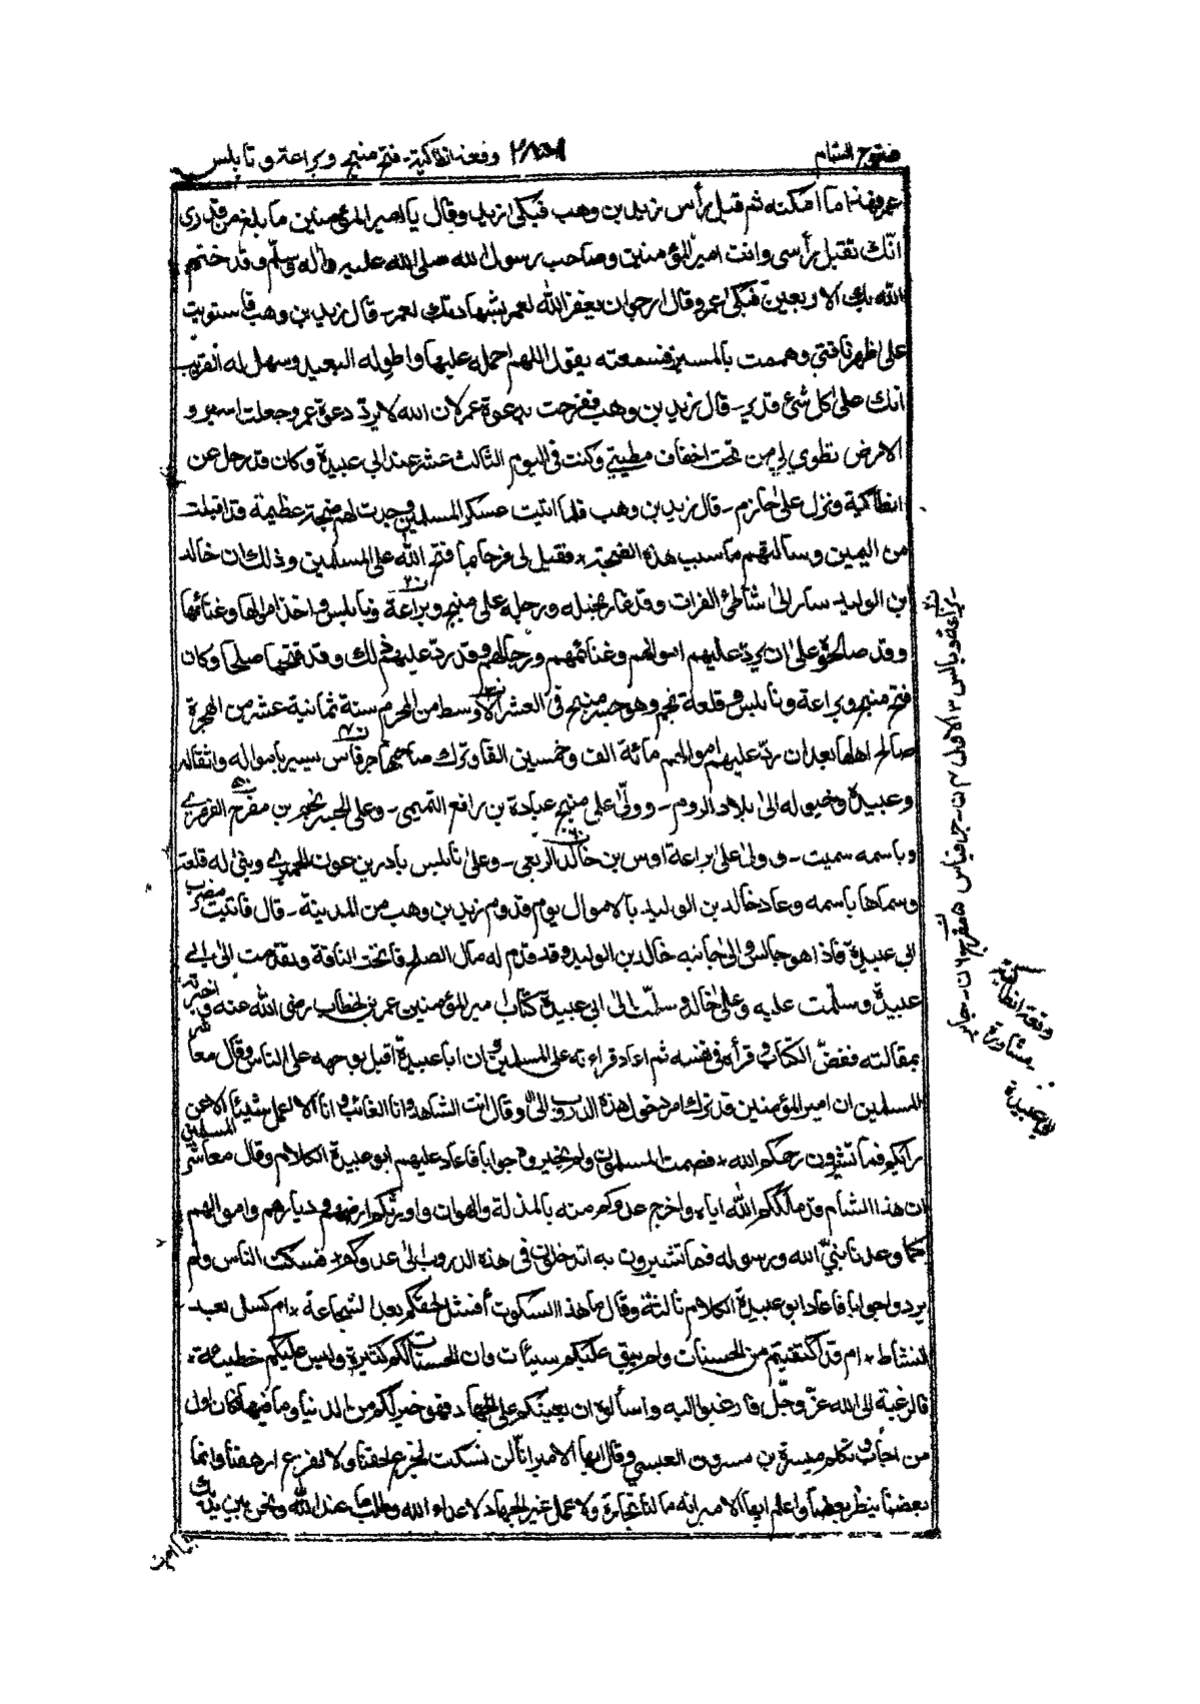 فتوح الشام ٢٨٨ وقعة انطاكية - فتح منبج وبراعة ونابلس
عمر فهذا ما امكنه ثم قبل رأس زيد بن وهب فبكى زيد وقال يا امير المؤمنين ما بلغ من قدرى
انك تقبل رأسى وانت امير المؤمنين وصاحب رسول الله صلى الله عليه واله وسلم وقد ختم
الله بك الاربعين فبكى عمر وقال ارجو ان يغفر الله لعمر بشهادتك لعمر - قال زيد بن وهب فاستويت
على ظهر ناقتى وهممت بالمسير فسمعته يقول اللهم احمله عليها واطو له البعيد وسهل له القريب
انك على كل شئ قدير - قال زيد بن وهب ففرحت بدعوة عمر لان الله لا يرد دعوة عمر وجعلت اسير و
الارض تطوي لي من تحت اخفاف مطيتي وكنت فى اليوم الثالث عشر عند ابي عبيدة وكان قد رحل عن
انطاكية ونزل على حازم - قال زيد بن وهب فلما اتيت عسكر المسلمين وجدت لهم ضجة عظيمة قد اقبلت
من اليمين وسالتهم ما سبب هذه الضجة * فقيل لى فرحا بما فتح الله على المسلمين وذلك ان خالد
ابن الوليد سار الى شاطئ الفرات وقد غار بخيله ورجله على منبج وبراعة ونابلس واخذ اموالها وغنائمها
وقد صالحوه على ان يرد عليهم اموالهم وغنائمهم ورجالهم وقد رد عليهم ذلك وقد فتحها صلحا وكان
فتح منبج وبراعة ونابلس وقلعة نجم وهو جسر منبج فى العشر الاوسط من المحرم سنة ثمانية عشر من الهجرة
صالح اهلها بعد ان رد عليهم اموالهم مائة الف وخمسين الفا وترك صاحبها جرفاس يسير باموال له واثقاله
وعبيده وخيوله الى بلاد الروم - وولى على منبج عبادة بن رافع التميمى - وعلى الجسر نجم بن مفرح الفهرى
وباسمه سميت - وولى على براعة اوس بن خالد الربعى - وعلى نابلس بادر بن عون الحميرى وبنى له قلعة
وسماها باسمه وعاد خالد بن الوليد بالاموال يوم قدوم زيد بن وهب من المدينة - قال فاتيت مضرب
ابى عبيدة فاذا هو جالس والى جانبه خالد بن الوليد وقد قدم له مال الصلح فانخت الناقة وتقدمت الى ابى
عبيدة وسلمت عليه وعلى خالد وسلمت الى ابى عبيدة كتاب امير المؤمنين عمر بن الخطاب رضى الله عنه واخبرته
بمقالته ففض الكتاب وقرأه فى نفسه ثم اعاد قراءته على المسلمين وان ابا عبيدة اقبل بوجهه على الناس وقال معاشر
المسلمين ان امير المؤمنين قد ترك امر دخول هذه الدروب الىّ وقال انت الشاهد وانا الغائب وانا لا اعمل شيئا الا عن
رأيكم فما تشيرون رحمكم الله * فصمت المسلمون ولم يحيروا جوابا فاعاد عليهم ابو عبيدة الكلام وقال معاشر المسلمين
ان هذا الشام قد ملككم الله اياه واخرج عدوكم منه بالمذلة والهوان واورثكم ارضهم وديارهم واموالهم
كما وعدنا نبيّ الله ورسوله فما تشيرون به اندخل فى هذه الدروب الى عدوكم * فسكت الناس ولم
يردوا جوابا فاعاد ابو عبيدة الكلام ثالثة وقال ما هذا السكوت أفشل لحقكم بعد الشجاعة * ام كسل بعد
النشاط * ام قد اكتفيتم من الحسنات ولم يبق عليكم سيئات وان الحسنات لكم كثيرة وليس عليكم خطيئة *
فالرغبة الى الله عز وجل فارغبوا اليه واسألوه ان يعينكم على الجهاد فهو خير لكم من الدنيا وما فيها فكان اول
من اجاب وتكلم ميسرة بن مسروق العبسي وقال ايها الامير انا لن نسكت لجزع لحقنا ولا لفزع ارهقنا وانما
بعضنا ينظر بعضا واعلم ايها الامير انه ما لنا تجارة ولا عمل غير الجهاد لاعداء الله وطلب ما عند الله ونحن بين يديك
وقعة انطاكية
مشاورة
ابي عبيدة